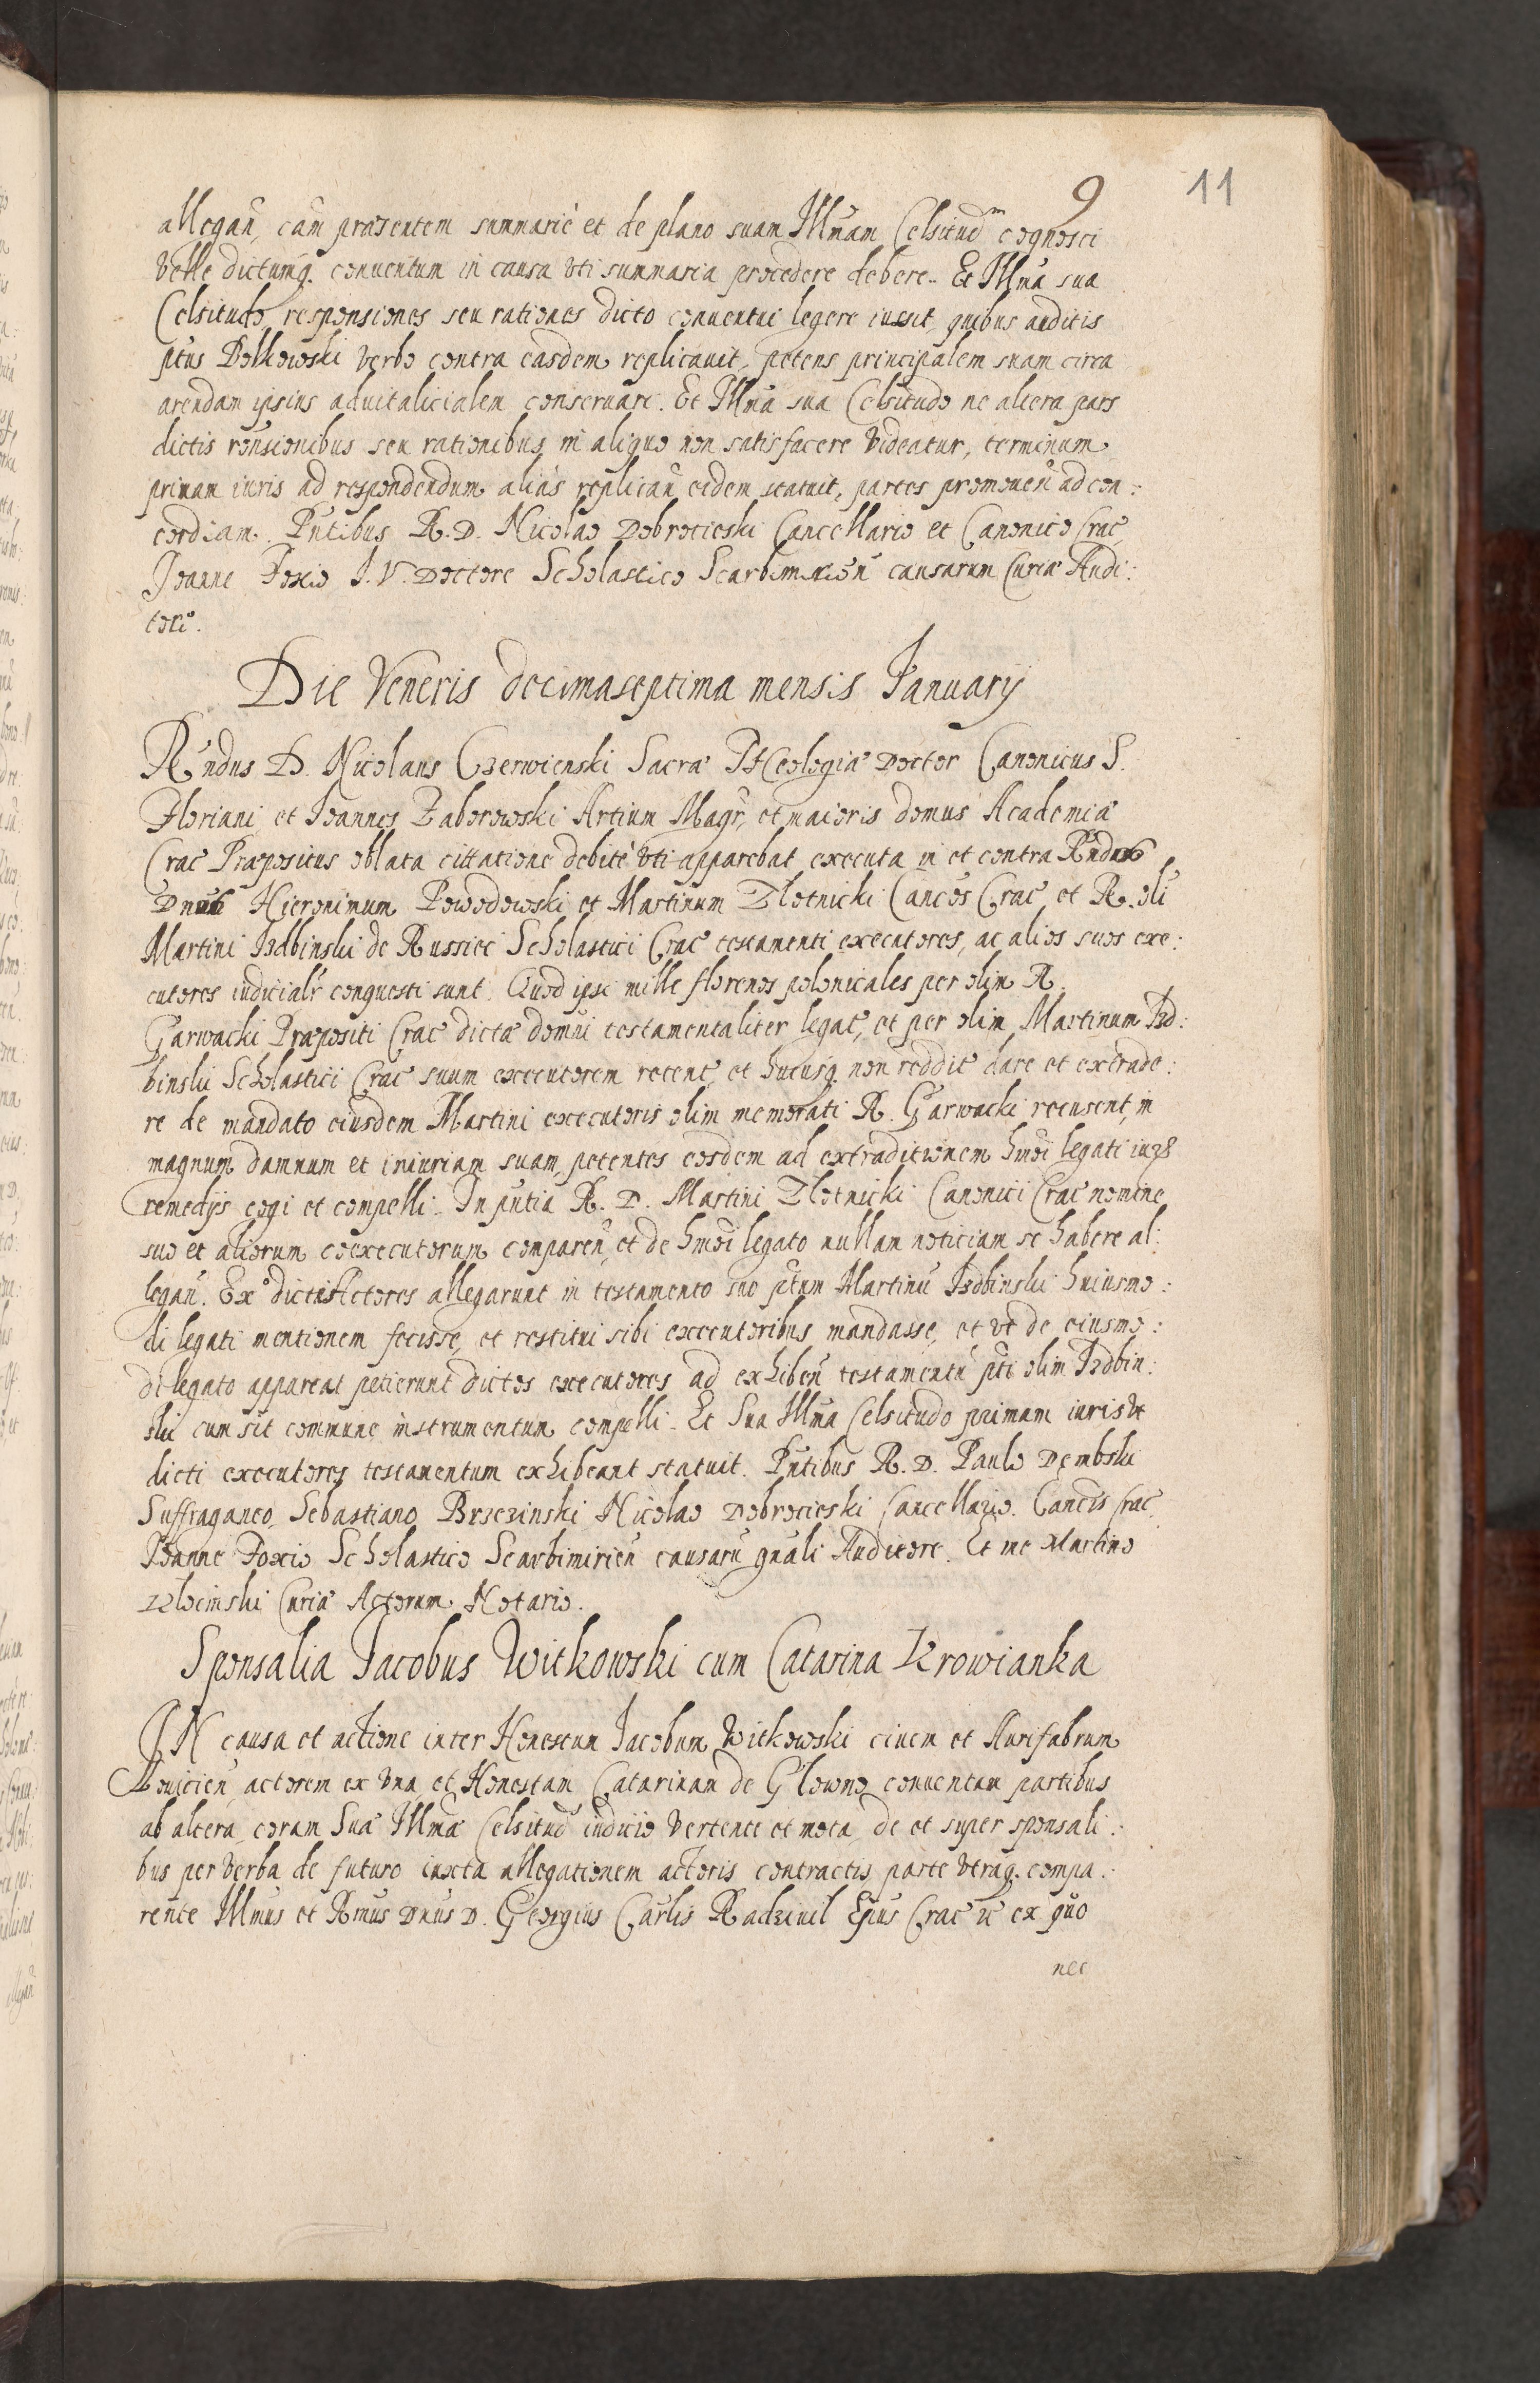 9
11
allegan̄, cām præsentem summariè et de plano suam Illm̄am Celsitud^m cognosci
velle dictumq. conuentum in causa vti summaria procedere debere. Et Illm̄a sua
Celsitudo responsiones seu rationes dicto conuentui legere iussit, quibus auditis
pt̄us Polkowski verbo contra easdem replicauit, petens principalem suam circa
arendam ipsius aduitalicialem conseruari. Et Illm̄a sua Celsitudo ne altera pars
dictis rōnsionibus seu rationibus in aliquo non satisfacere videatur, terminum
primam iuris ad respondendum aliàs replican̄ eidem statuit, partes promouen̄ ad con:
cordiam. Pn̄tibus R. D. Nicolao Dobrocieski Cancellario et Canonico Crac̄,
Joanne Foxio J. V. Doctore Scholastico Scarbimirien̄ causarum Curiæ Audi:
tori.
Die Veneris decimaseptima mensis Januarij
Rn̄dus D. Nicolaus Czerwienski Sacræ Theologiæ Doctor Canonicus S.
Floriani et Joannes Zaborowski Artium Magr̄, et maioris domus Academiæ
Crac̄ Præpositus oblata cittatione debitè vti apparebat executa in et contra Rn̄dos
Dnos Hieronimum Powodowski et Martinum Zlotnicki Can̄cos Crac̄ et R. oli
Martini Izdbinski de Russiec Scholastici Crac̄ testamenti executores, ac alios suos exe:
cutores iudicialr̄ conquesti sunt. Quod ipsi mille florenos polonicales per olim R.
Garwacki Præpositi Crac̄ dictæ domui testamentaliter legat̄, et per olim Martinum Izd:
binski Scholastici Crac̄ suum executorem retent̄, et hucusq. non reddit̄ dare et extrade:
re de mandato eiusdem Martini executoris olim memorati R. Garwacki recusent, in
magnum damnum et iniuriam suam, petentes eosdem ad extraditionem hmōi legati iuris
remedijs cogi et compelli. In pn̄tia R. D. Martini Zlotnicki Canonici Crac̄ nomine
suo et aliorum coexecutorum comparen̄, et de hmōi legato nullam noticiam se habere al:
legan̄. Ex° dicti Actores allegarunt in testamento suo pt̄um Martinū Izdbinski huiusmo:
di legati mentionem fecisse, et restitui sibi executoribus mandasse, et vt de eiusmo:
di legato appareat petierunt dictos executores ad exhiben̄ testamentū pt̄i olim Izdbin:
ski cum sit commune instrumentum compelli. Et Sua Illm̄a Celsitudo primam iuris vt
dicti executores testamentum exhibeant statuit. Pn̄tibus R. D. Paulo Dembski
Suffraganeo, Sebastiano Brzezinski Nicolao Dobrocieski Cancellario. Can̄cis Crac̄.
Joanne Foxio Scholastico Scarbimirien̄ causarū gn̄ali Auditore. Et me Martino
Klocinski Curiæ Actorum Notario.
Sponsalia Jacobus Witkowski cum Catarina Krowianka
IN causa et actione inter Honestum Jacobum Witkowski ciuem et Aurifabrum
Louicien̄ actorem ex vna, et Honestam Catarinam de Glowno conuentam partibus
ab altera, coram Suæ Illmæ Celsitud̄ iudicio vertente et mota, de et super sponsali:
bus per verba de futuro iuxta allegationem actoris contractis, parte vtraq. compa:
rente Illmus et Rmus Dnus D. Georgius Car̄lis Radziuil Epūs Crac̄ &c ex quo
nec